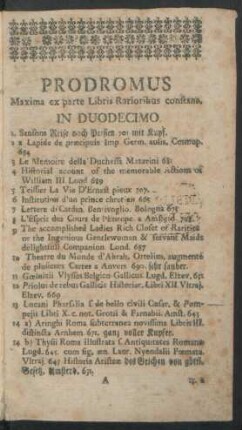 PRODROMUS
Maxima ex parte Libris Rarioribus constans,
IN DUODECIMO.
1. Sansons Reise nach Persien 701 mit Kupf.
2 Lapide de præcipuis Imp. Germ. auth. Centrap. 694
3 Le Memoire della Duchessa Mazarini 68
4 Historial acount of the memorable Actions of
William III Lond 689
5 Teissier La Vie D'Ernest pieux 707.
6 Institution d'un prince chretien
7 Lettere di Cardin. Bentivoglio. Bologna
8 L'Esprit des Cours de l'Europe a Amsterd.
9 The accomplished Ladies Rich Closet of Rarities
or the Ingenious Gentlewoman & servant Maids
delightfull Companion Lond. 687
10 Theatre du Monde d'Abrah. Ortelius, augmenté
de plusieurs Cartes a Anvers 690. sehr sauber.
11 Gœlnitii Ulysses Belgico Gallicus Lugd. Elzev. 631
12 Priolus de rebus Gallicis Historiar. Libri XII Vltraj.
Elzev. 669
13 Lucani Pharsalia f. de bello civili Cæsar. & Pom-
peji Libri X. c. not. Grotii & Farnabii. Amst. 643
14 a) Aringhi Roma subterranea novissima Libris III.
distincta Arnhem 671. ganz voller Kupfer.
b) Thysii Roma Illustrata f. Antiquitates Romanæ
Lugd. 645 cum fig.
A